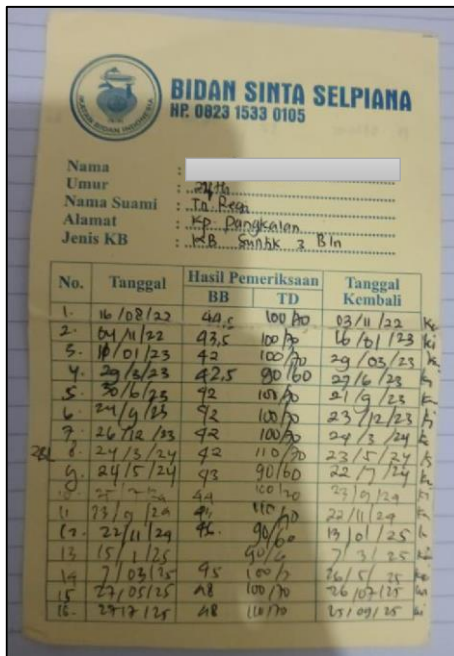 IKATAN BIDAN INDONESIA
BIDAN SINTA SELPIANA
HP. 0823 1533 0105
Nama :
Umur : 24th
Nama Suami : Tn. Regi
Alamat : Kp. Pangkalan
Jenis KB : KB Suntik 3 Bln
No. Tanggal Hasil Pemeriksaan Tanggal Kembali
BB TD
1. 16/08/22 44,5 100/70 03/11/22
2. 04/11/22 43,5 100/70 16/01/23 ki
3. 10/01/23 42 100/70 29/03/23
4. 29/3/23 42,5 90/60 27/6/23
5. 30/6/23 42 100/70 21/9/23
6. 42 100/70 23/12/23
7. 26/12/33 42 100/70 24/3/24
8. 24/3/24 42 110/70 23/5/24
9. 24/5/24 43 90/60 22/7/24
10 44 100/70 23/9/24
11 23/9/24 110/70 22/11/24
12. 22/11/24 46. 90/60 13/01/25
13 15/1/25 7/3/25
14 7/03/25 45 26/5/25
15 27/05/25 48 100/70 26/07/25
16. 2717/25 48 110/70 25/09/25